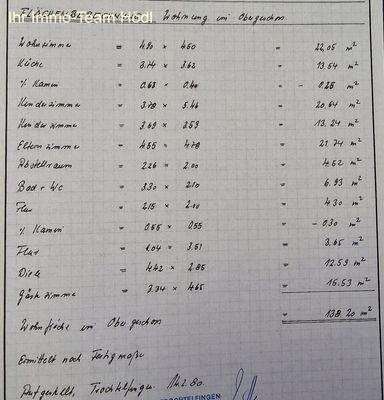 Ihr Immo-Team Hödl
FLÄCHENBERECHNUNG Wohnung im Obergeschoss
Wohnzimmer = 4.90 × 4.50 = 22,05 m²
Küche = 3.74 × 3.62 = 13.54 m²
% Kamin = 0.63 × 0.40 = - 0.25 m²
Kinderzimmer = 3.78 × 5.46 = 20,64 m²
Kinderzimme = 3.69 × 3.59 = 13.24 m²
Elternzimme = 4.55 × 4.78 = 21.74 m²
Abstellraum = 2.26 × 2.00 = 4.52 m²
Bad + WC = 3.30 × 2.10 = 6.93 m²
Flur = 2.15 × 2.00 = 4.30 m²
% Kamin = 0.55 × 0.55 = - 0.30 m²
Flur = 1.04 × 3.51 = 3.65 m²
Diele = 4.42 × 2.85 = 12.59 m²
Gästezimme = 3.34 × 4.65 = 15.53 m²
Wohnfläche im Obergeschoss = 138.20 m²
Ermittelt nach Fertigmaße
Aufgestellt, Trochtelfingen 14.2.80.
TROCHTELFINGEN